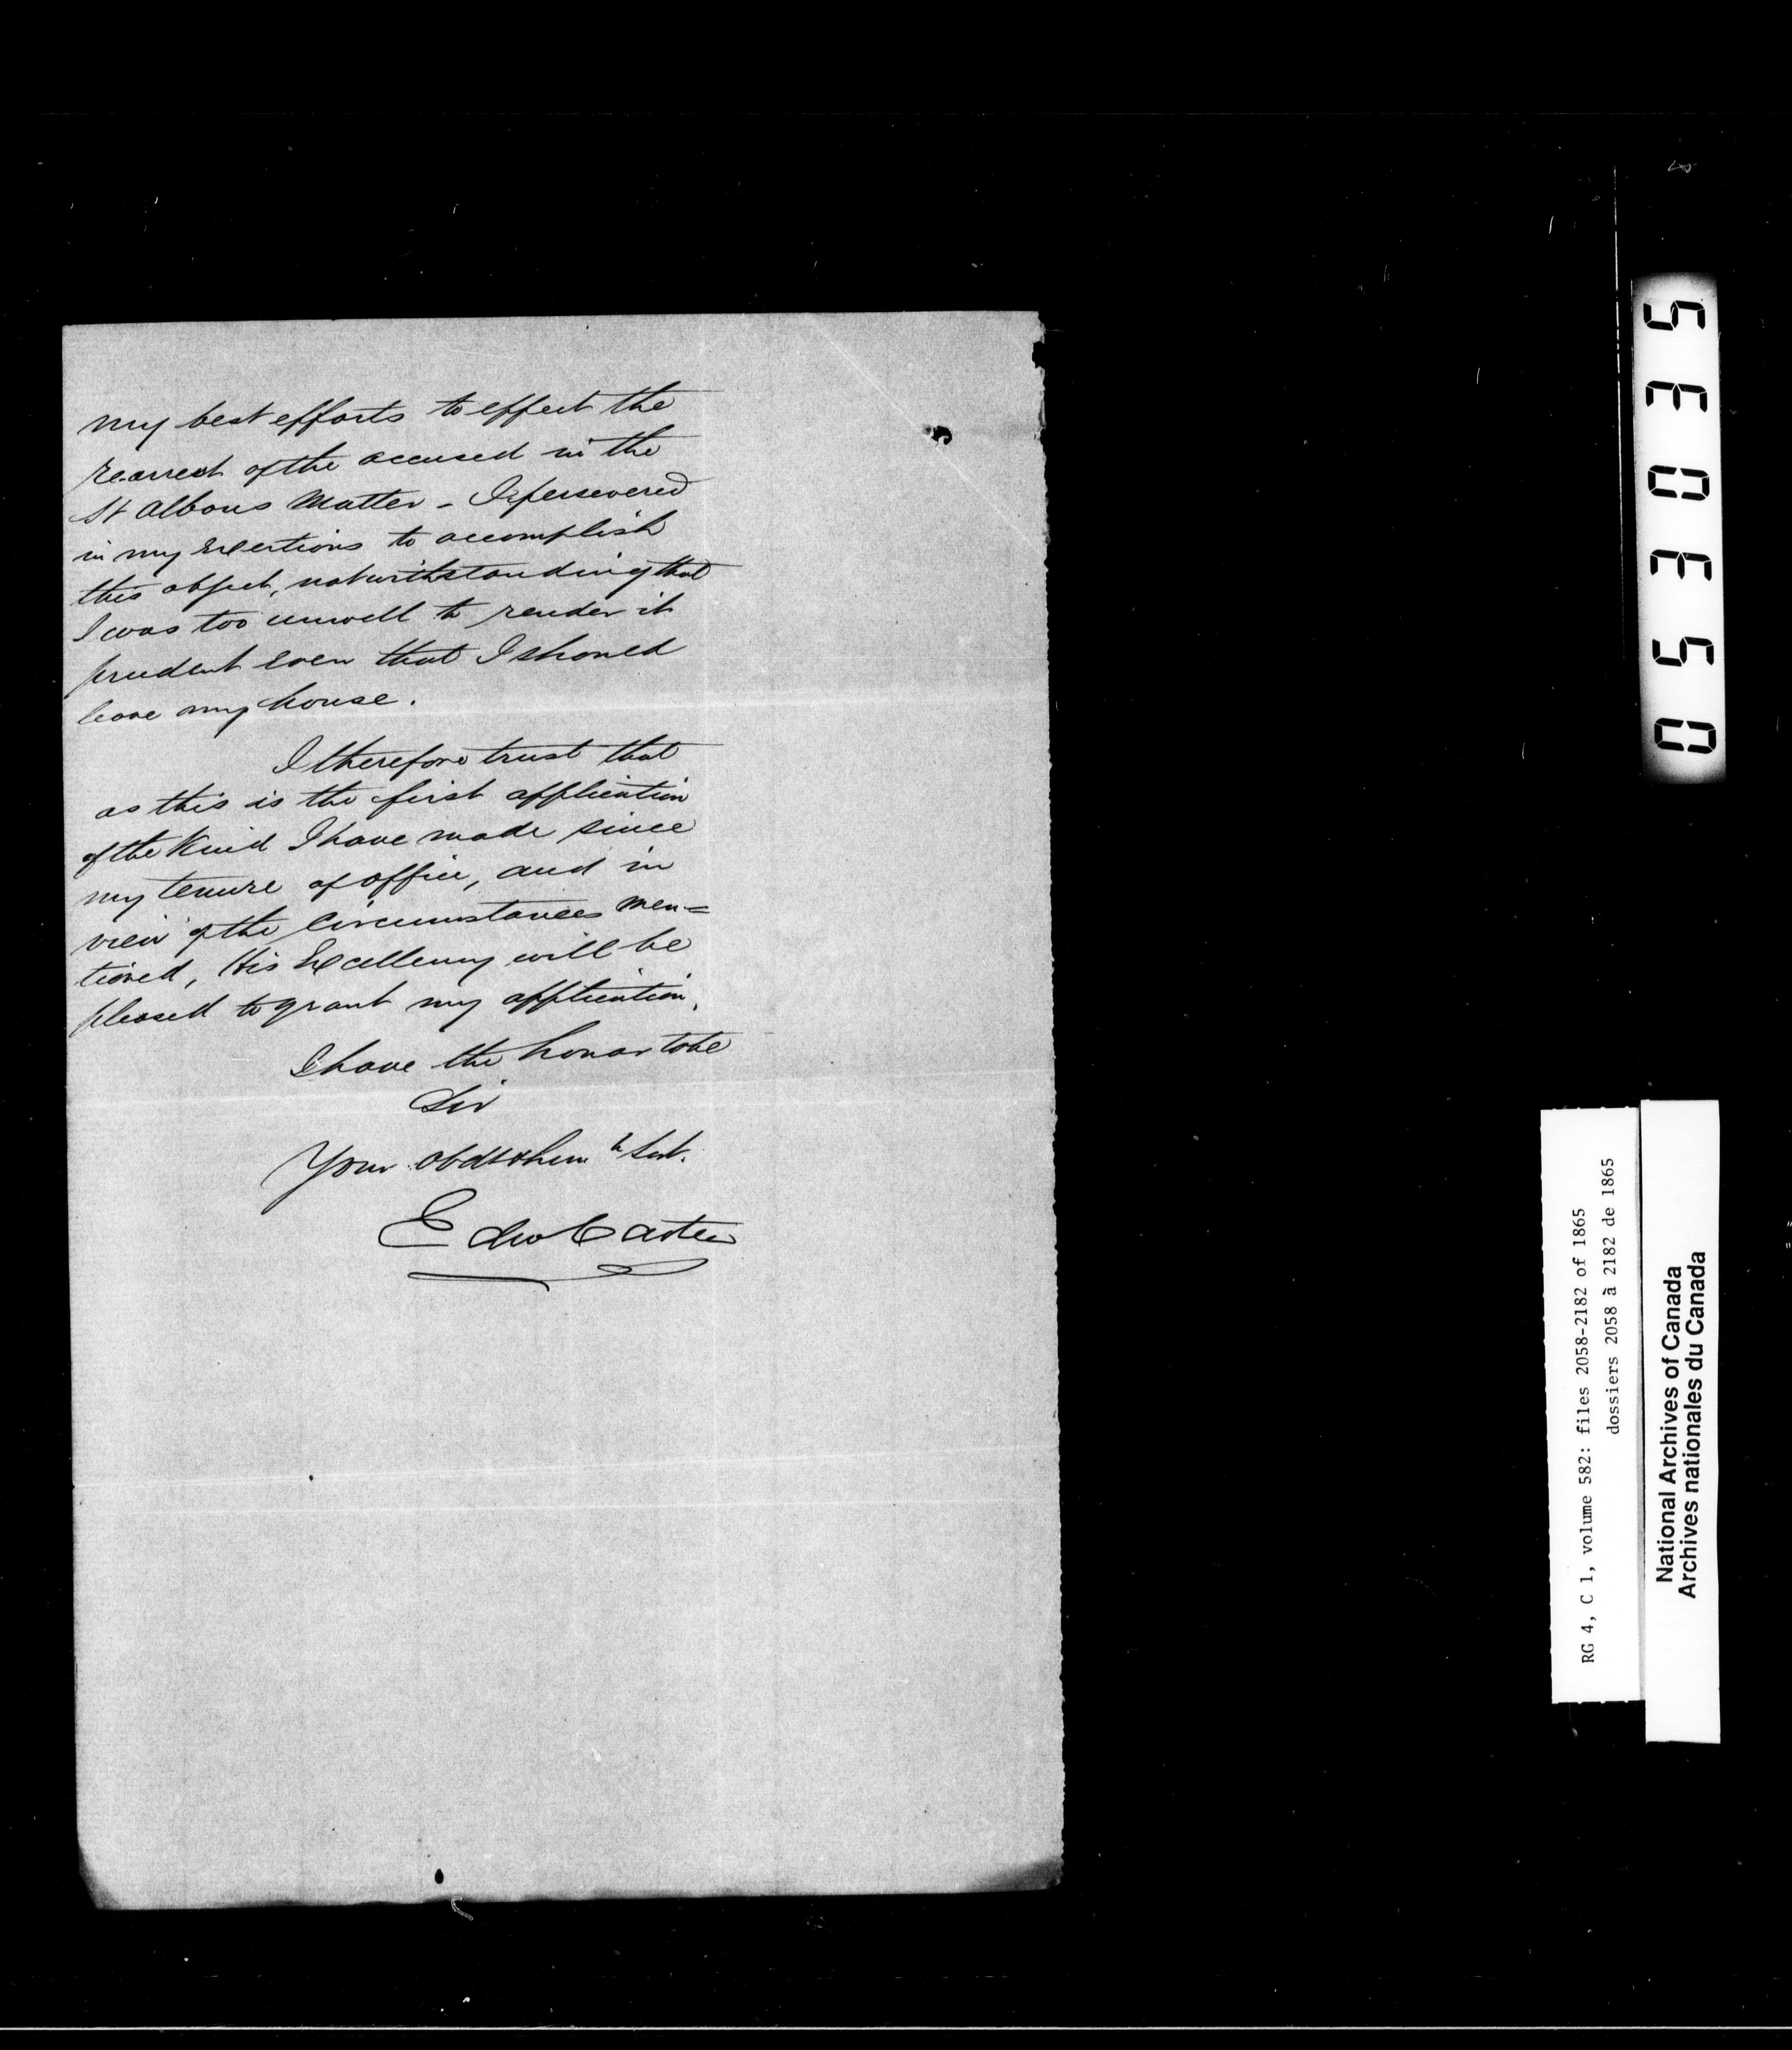 my best efforts to effect the
rearrest of the accused in the
St Albans Matter - I persevered
in my exertions to accomplish
this object, notwithstanding that
I was too unwell to render it
prudent even that I should
leave my house.
I therefore trust that
as this is the first application
of the kind I have made since
my tenure of office, and in
view of the circumstances men=
tioned, His Excellency will be
pleased to grant my application.
I have the honor to be
Sir
Your obdt & hum le Sert.
Edw Carter
53035 0
RG 4, C 1, volume 582: files 2058-2182 of 1865
dossiers 2058 à 2182 de 1865
National Archives of Canada
Archives nationales du Canada